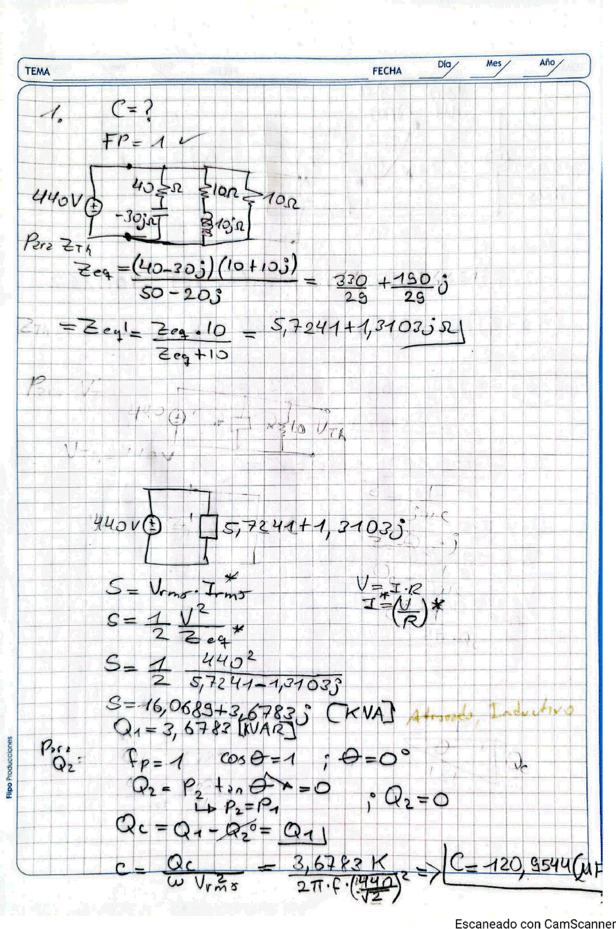 TEMA FECHA Día Mes Año
1. C = ?
FP = 1 ✓
440V 40 Ω -30jΩ 10Ω 10jΩ 10Ω
Para ZTh
Zeq = (40-30j)(10+10j) / 50-20j = 330/29 + 190/29 j
ZTh = Zeq' = Zeq · 10 / Zeq+10 = 5,7241+1,3103jΩ
440 10 VTh
440V 5,7241+1,3103j
S = Vrms · Irms*
V = I·R
I* = (V/R)*
S = 1/2 V²/Zeq*
S = 1/2 440²/5,7241-1,3103j
S = 16,0689+3,6783j [KVA] Atrasado, Inductivo
Q1 = 3,6783 [KVAR]
Para Q2: fp = 1 cosθ = 1 ; θ = 0°
Q2 = P2 tan θ = 0 ; Q2 = 0
↳ P2 = P1
Qc = Q1 - Q2 = Q1
C = Qc / ω Vrms² = 3,6783 K / 2π·f·(440/√2)² => C = 120,9544 (μF
Flipo Producciones
Escaneado con CamScanner